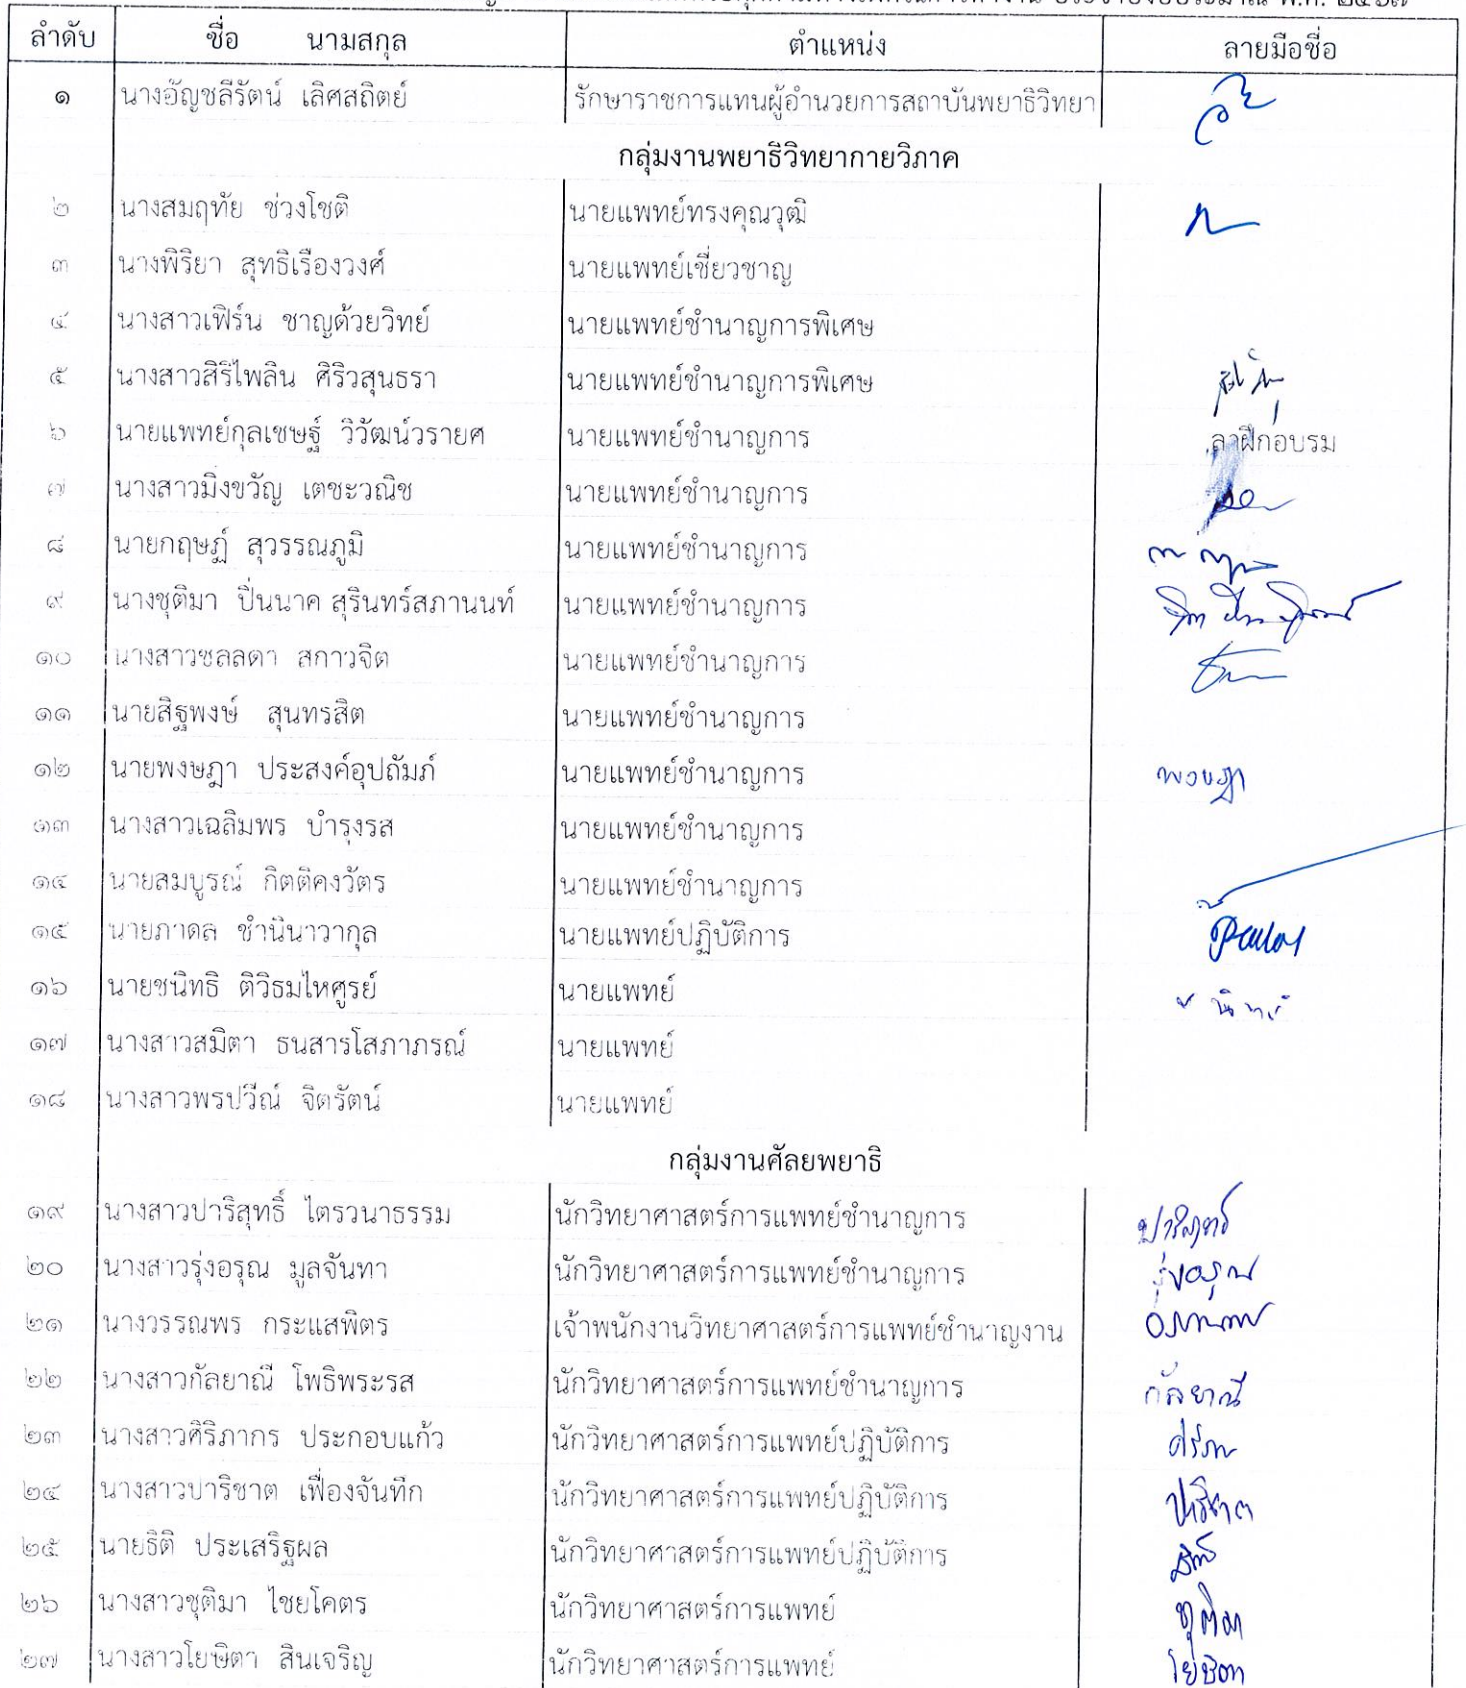 ลำดับ ชื่อ นามสกุล ตำแหน่ง ลายมือชื่อ
๑ นางอัญชลีรัตน์ เลิศสถิตย์ รักษาราชการแทนผู้อำนวยการสถาบันพยาธิวิทยา
กลุ่มงานพยาธิวิทยากายวิภาค
๒ นางสมฤทัย ช่วงโชติ นายแพทย์ทรงคุณวุฒิ
๓ นางพิริยา สุทธิเรืองวงศ์ นายแพทย์เชี่ยวชาญ
๔ นางสาวเฟิร์น ชาญด้วยวิทย์ นายแพทย์ชำนาญการพิเศษ
๕ นางสาวสิริไพลิน ศิริวสุนธรา นายแพทย์ชำนาญการพิเศษ
๖ นายแพทย์กุลเชษฐ์ วิวัฒน์วรายศ นายแพทย์ชำนาญการ ลาฝึกอบรม
๗ นางสาวมิ่งขวัญ เตชะวณิช นายแพทย์ชำนาญการ
๘ นายกฤษฏ์ สุวรรณภูมิ นายแพทย์ชำนาญการ
๙ นางชุติมา ปิ่นนาค สุรินทร์สภานนท์ นายแพทย์ชำนาญการ
๑๐ นางสาวชลลดา สกาวจิต นายแพทย์ชำนาญการ
๑๑ นายสิฐพงษ์ สุนทรสิต นายแพทย์ชำนาญการ
๑๒ นายพงษฎา ประสงค์อุปถัมภ์ นายแพทย์ชำนาญการ พงษฎา
๑๓ นางสาวเฉลิมพร บำรุงรส นายแพทย์ชำนาญการ
๑๔ นายสมบูรณ์ กิตติคงวัตร นายแพทย์ชำนาญการ
๑๕ นายภาดล ชำนินาวากุล นายแพทย์ปฏิบัติการ
๑๖ นายชนิทธิ ติวิธมไหศูรย์ นายแพทย์
๑๗ นางสาวสมิตา ธนสารโสภาภรณ์ นายแพทย์
๑๘ นางสาวพรปวีณ์ จิตรัตน์ นายแพทย์
กลุ่มงานศัลยพยาธิ
๑๙ นางสาวปาริสุทธิ์ ไตรวนาธรรม นักวิทยาศาสตร์การแพทย์ชำนาญการ ปาริสุทธิ์
๒๐ นางสาวรุ่งอรุณ มูลจันทา นักวิทยาศาสตร์การแพทย์ชำนาญการ รุ่งอรุณ
๒๑ นางวรรณพร กระแสพิตร เจ้าพนักงานวิทยาศาสตร์การแพทย์ชำนาญงาน
๒๒ นางสาวกัลยาณี โพธิพระรส นักวิทยาศาสตร์การแพทย์ชำนาญการ กัลยาณี
๒๓ นางสาวศิริภากร ประกอบแก้ว นักวิทยาศาสตร์การแพทย์ปฏิบัติการ
๒๔ นางสาวปาริชาต เฟื่องจันทึก นักวิทยาศาสตร์การแพทย์ปฏิบัติการ ปาริชาต
๒๕ นายธิติ ประเสริฐผล นักวิทยาศาสตร์การแพทย์ปฏิบัติการ
๒๖ นางสาวชุติมา ไชยโคตร นักวิทยาศาสตร์การแพทย์ ชุติมา
๒๗ นางสาวโยษิตา สินเจริญ นักวิทยาศาสตร์การแพทย์ โยษิตา